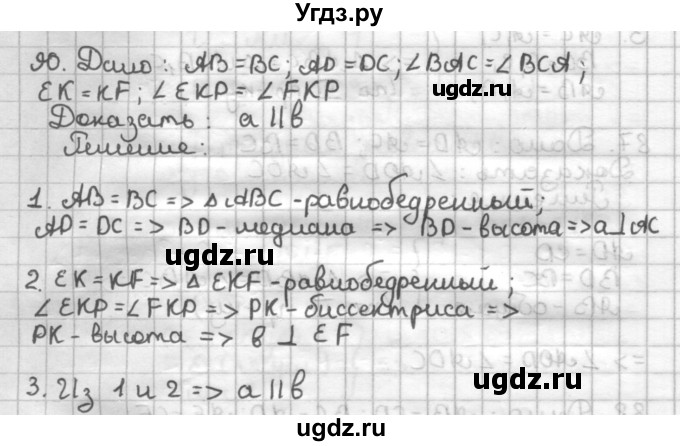 Угдз.ру
90. Дано: AB=BC; AD=DC; ∠BAC=∠BCA;
EK=KF; ∠EKP=∠FKP
угдз.ру
Доказать: a || b
Решение:
1. AB=BC => △ABC - равнобедренный;
AD=DC => BD - медиана => BD - высота => a⊥AC
угдз.ру
2. EK=KF => △EKF - равнобедренный;
∠EKP=∠FKP => PK - биссектриса =>
PK - высота => b ⊥ EF
3. Из 1 и 2 => a || b
угдз.ру
угдз.ру